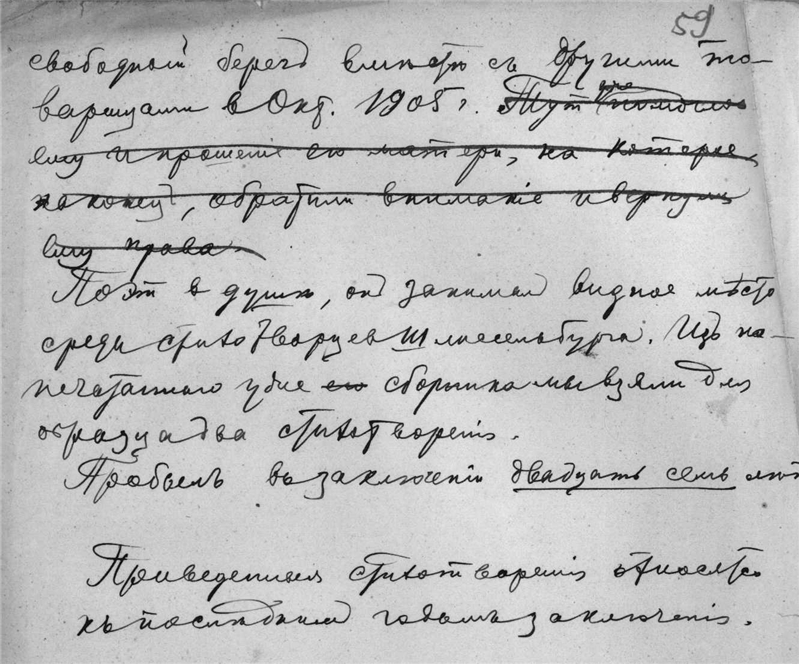 59
свободный берегъ вмѣстѣ съ другими то-
варищами в Окт. 1905 г. Тут уже помогло
ему и прошеніе его матери, на которые,
наконец, обратили вниманіе и вернули
ему права.
Поэт в душѣ, он занимал видное мѣсто
среди стихотворцев Шлиссельбурга. Изъ на-
печатаннаго уже его сборника мы взяли для
образца два стихотворенія.
Пробылъ въ заключеніи двадцать семь лѣт
Приведенныя стихотворенія относятся
къ послѣдним годамъ заключенія.